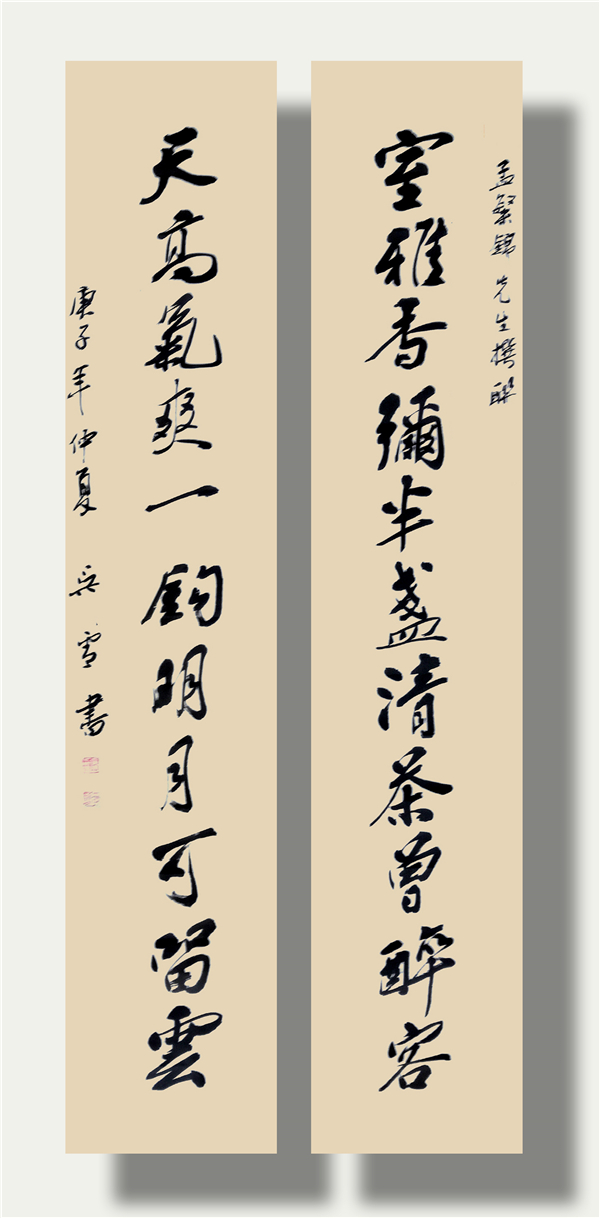 孟繁锦先生撰联
室雅香彌半盞清茶曾醉客
天高氣爽一鉤明月可留雲
庚子年仲夏 吴雪書